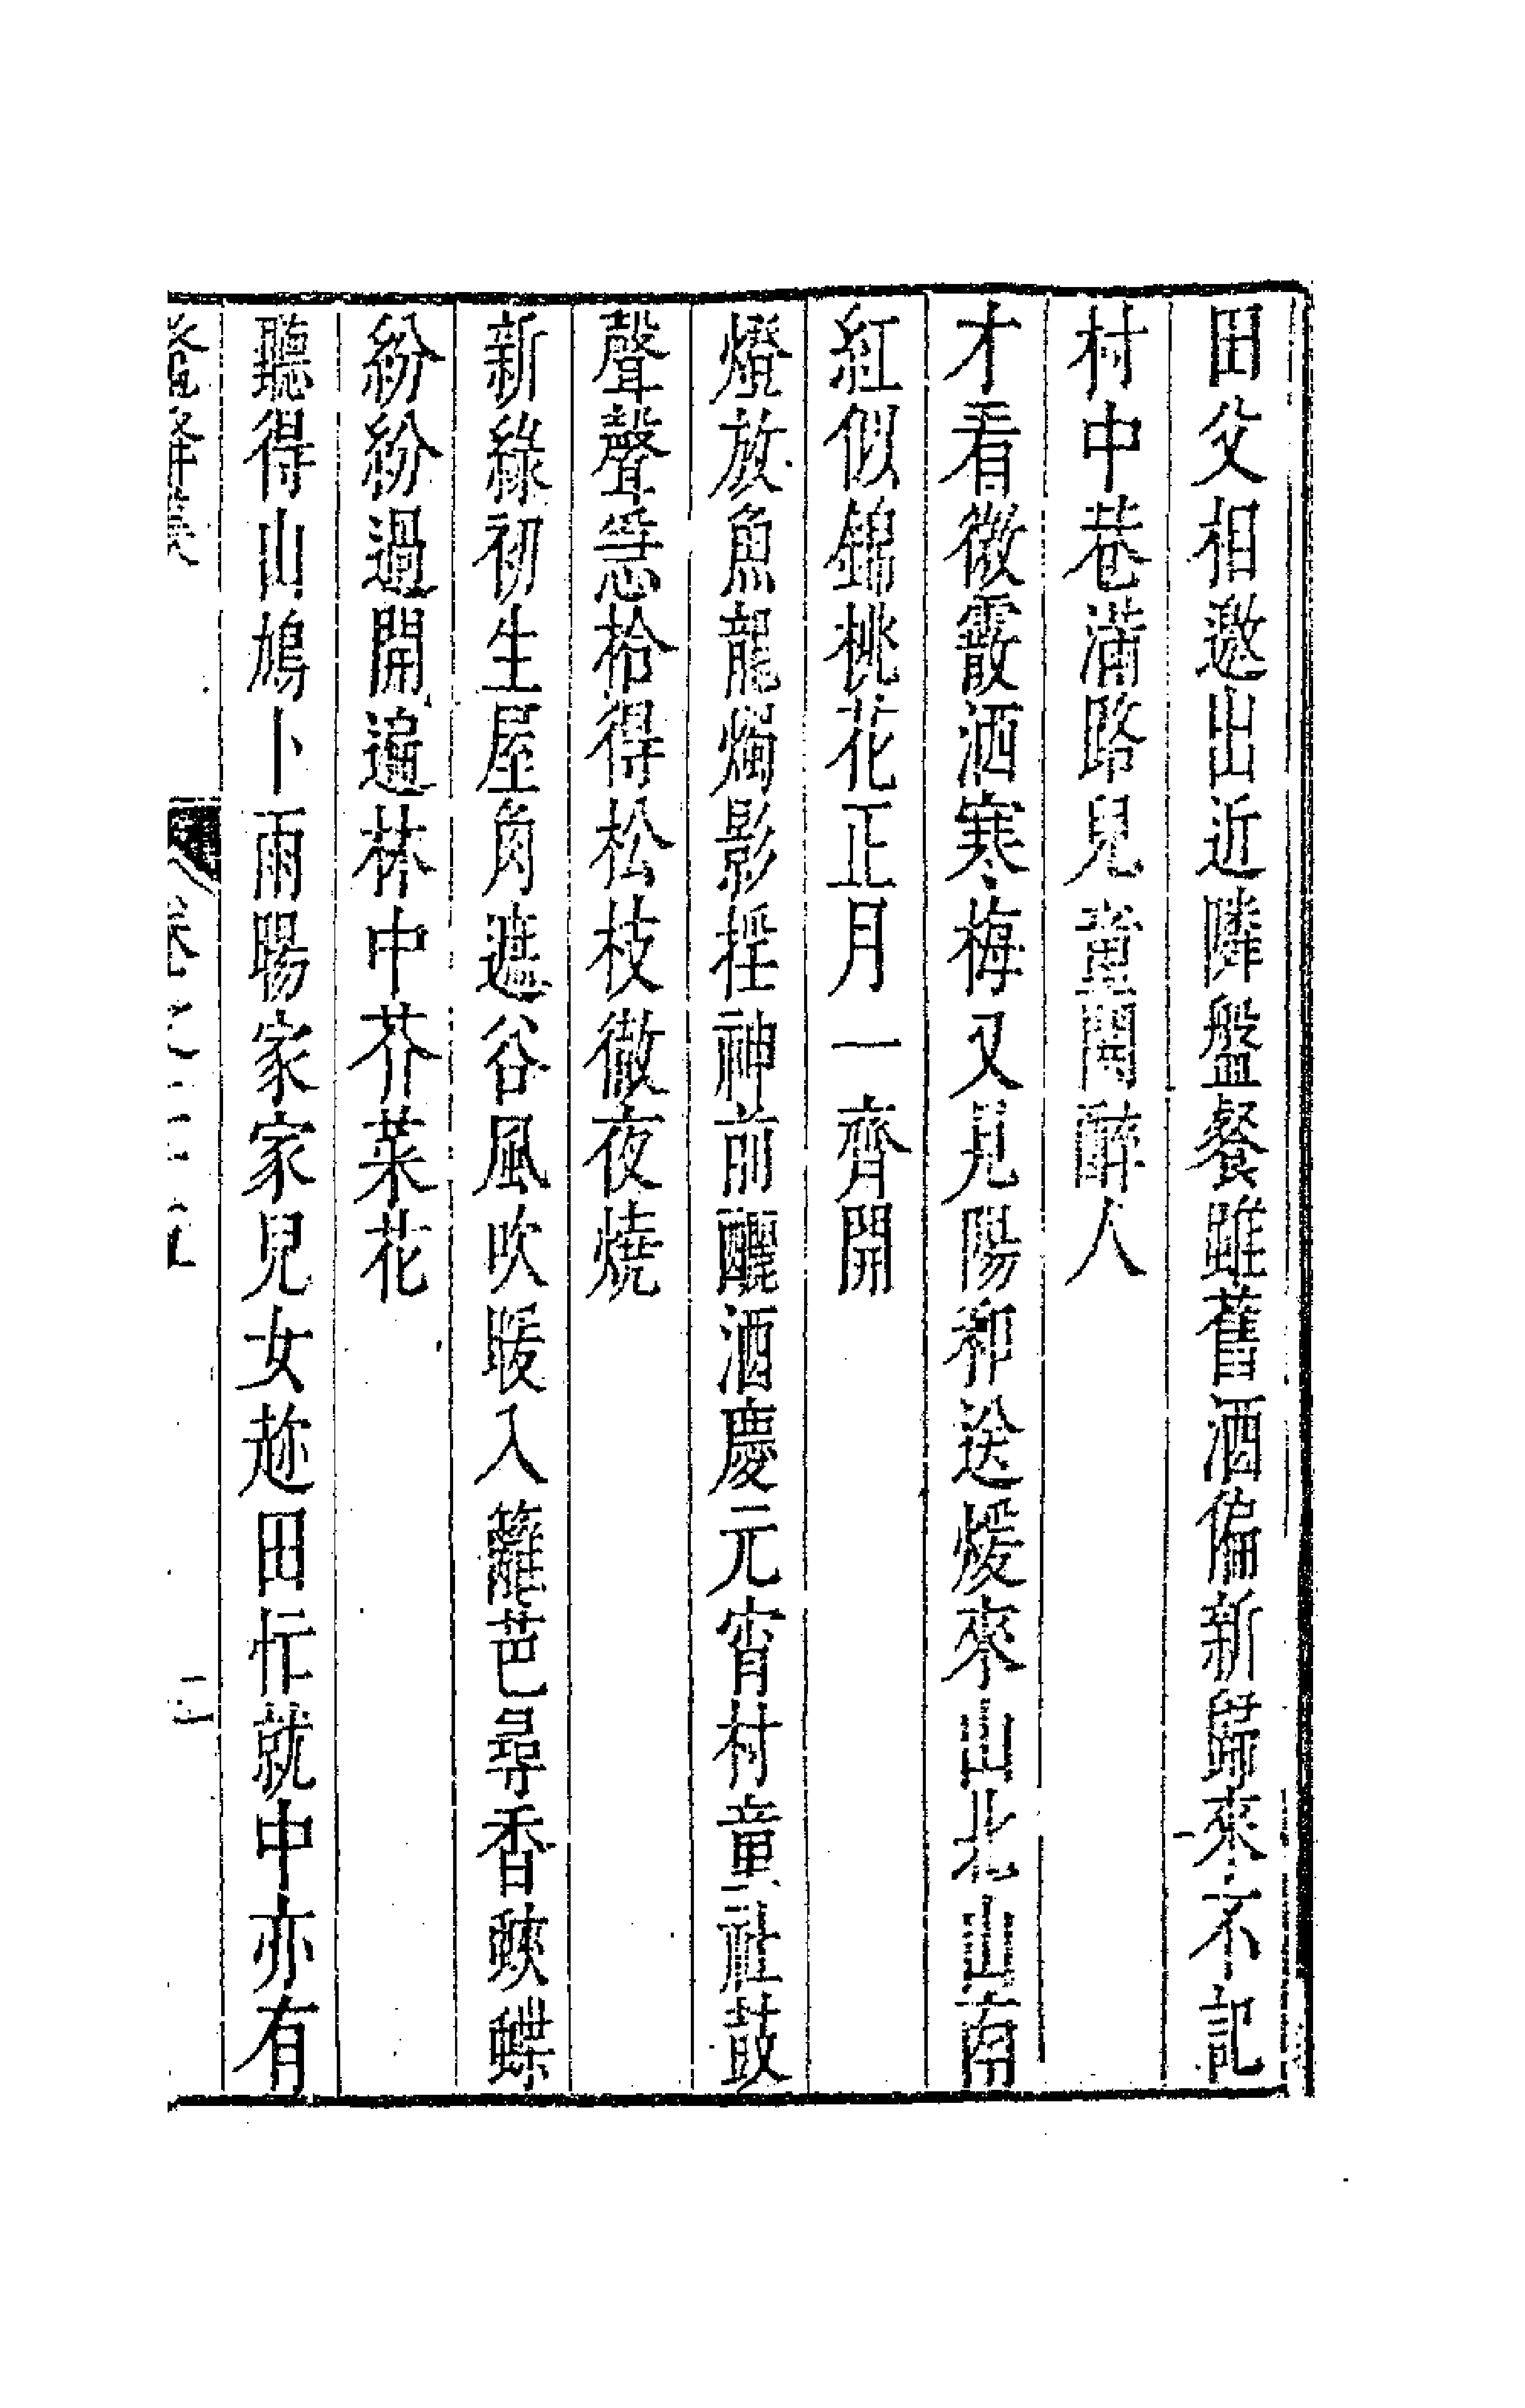 田父相邀出近隣盤餐雖舊酒偏新歸來不記
村中巷滿路兒童鬧醉人
才看微霰洒寒梅又見陽和送煖來山北山南
紅似錦桃花正月一齊開
燈放魚龍燭影搖神前釃酒慶元宵村童社鼓
聲聲急拾得松枝徹夜燒
新綠初生屋角遮谷風吹暖入籬芭尋香蛺蝶
紛紛過開遍林中芥菜花
聽得山鳩卜雨暘家家兒女趂田忙就中亦有
卷之二十五
二